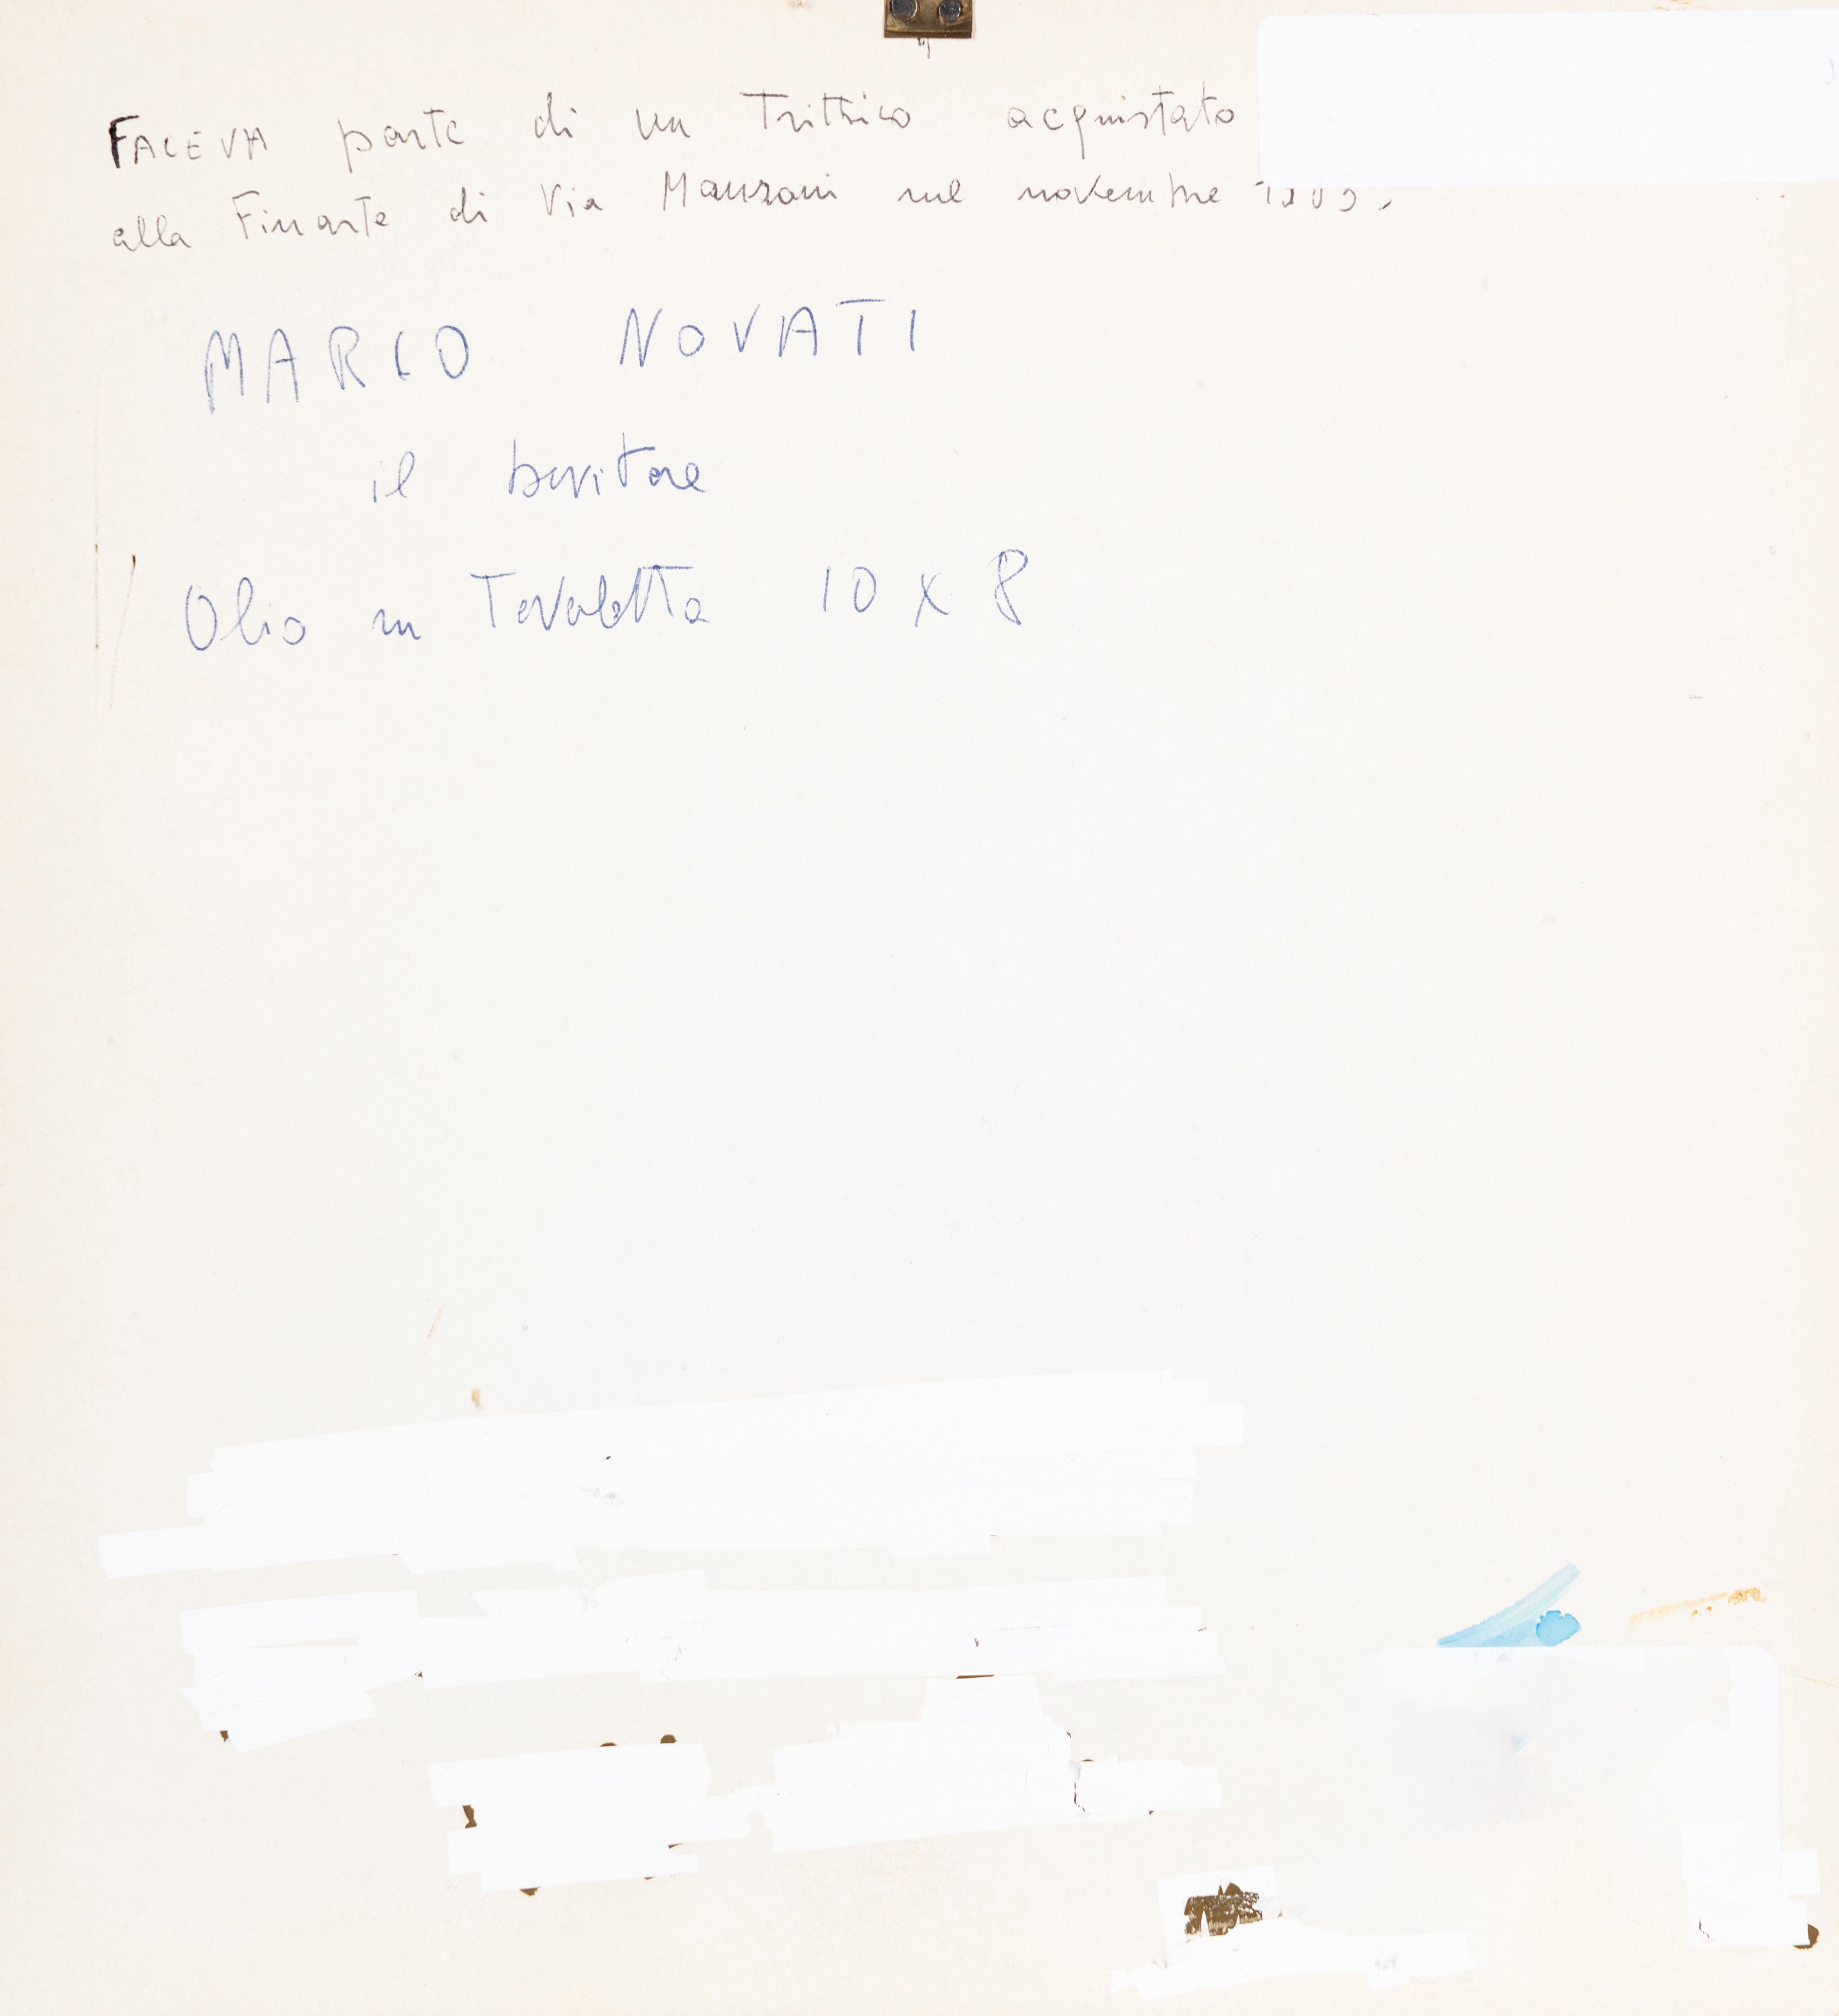 FACEVA parte di un Trittico acquistato
alla Finarte di Via Manzoni nel novembre
MARCO NOVATI
il bevitore
Olio su Tavoletta 10 x 8